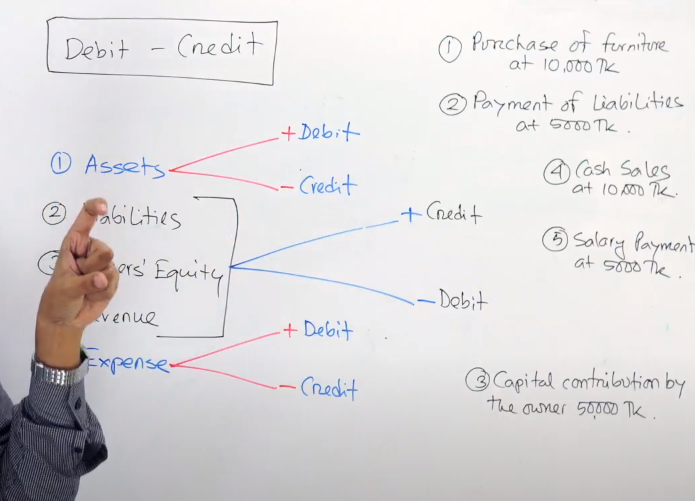 Debit - Credit
① Assets
+ Debit
- Credit
②
③ Equity
+ Credit
- Debit
Expense
+ Debit
- Credit
① Purchase of furniture
at 10,000 Tk
② Payment of Liabilities
at 5000 Tk.
④ Cash Sales
at 10,000 Tk.
⑤ Salary Payment
at 5000 Tk.
③ Capital contribution by
the owner 50,000 Tk.